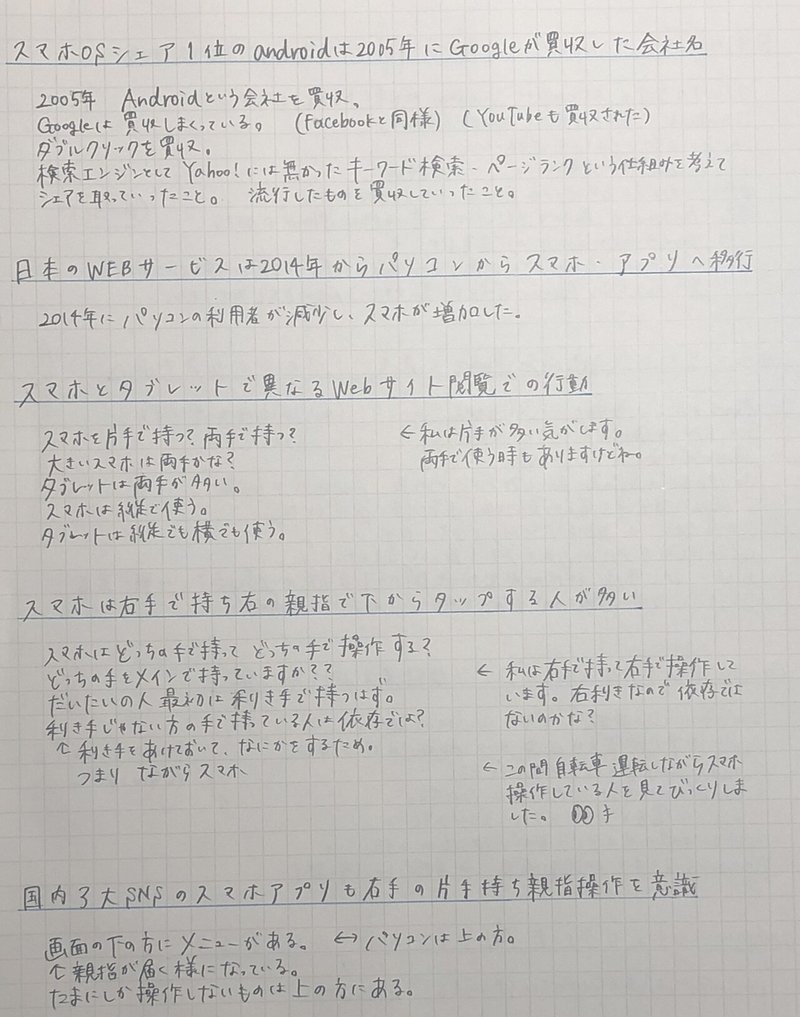 スマホOSシェア1位のandroidは2005年にGoogleが買収した会社名
2005年 Androidという会社を買収。
Googleは買収しまくっている。 (Facebookと同様) (YouTubeも買収された)
ダブルクリックを買収。
検索エンジンとしてYahoo!には無かったキーワード検索・ページランクという仕組みを考えて
シェアを取っていったこと。 流行したものを買収していったこと。
日本のWEBサービスは2014年からパソコンからスマホ・アプリへ移行
2014年にパソコンの利用者が減少し、スマホが増加した。
スマホとタブレットで異なるWebサイト閲覧での行動
スマホを片手で持つ? 両手で持つ?
大きいスマホは両手かな?
タブレットは両手が多い。
スマホは縦で使う。
タブレットは縦でも横でも使う。
←私は片手が多い気がします。
両手で使う時もありますけどね。
スマホは右手で持ち右の親指で下からタップする人が多い
スマホはどっちの手で持って どっちの手で操作する?
どっちの手をメインで持っていますか??
だいたいの人 最初は利き手で持つはず。
利き手じゃない方の手で持っている人は依存では?
↑利き手をあけておいて、なにかをするため。
つまり ながらスマホ
← 私は右手で持って右手で操作して
います。右利きなので依存では
ないのかな?
←この間自転車運転しながらスマホ
操作している人を見てびっくりしま
した。
国内3大SNSのスマホアプリも右手の片手持ち親指操作を意識
画面の下の方にメニューがある。 ↔パソコンは上の方。
↑親指が届く様になっている。
たまにしか操作しないものは上の方にある。